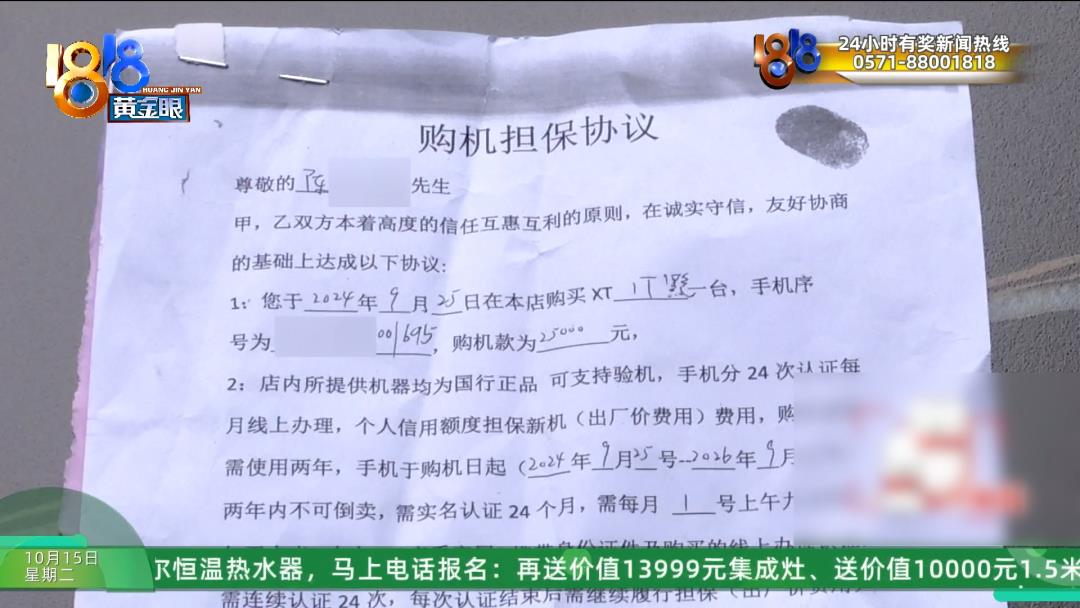 1818
HUANG JIN YAN
黄金眼
1818
24小时有奖新闻热线
0571-88001818
购机担保协议
尊敬的 陈 先生
甲，乙双方本着高度的信任互惠互利的原则，在诚实守信，友好协商
的基础上达成以下协议：
1：您于 2024 年 9 月 25 日在本店购买 XT 一台，手机序
号为 001695，购机款为 25000 元，
2：店内所提供机器均为国行正品 可支持验机，手机分 24 次认证每
月线上办理，个人信用额度担保新机（出厂价费用）费用，购
需使用两年，手机于购机日起（2024 年 9 月 25 号--2026 年 9 月
两年内不可倒卖，需实名认证 24 个月，需每月 1 号上午九
身份证件及购买的线上办
需连续认证 24 次，每次认证结束后需继续履行担保（出厂价费用
10月15日
星期二
尔恒温热水器，马上电话报名：再送价值13999元集成灶、送价值10000元1.5米